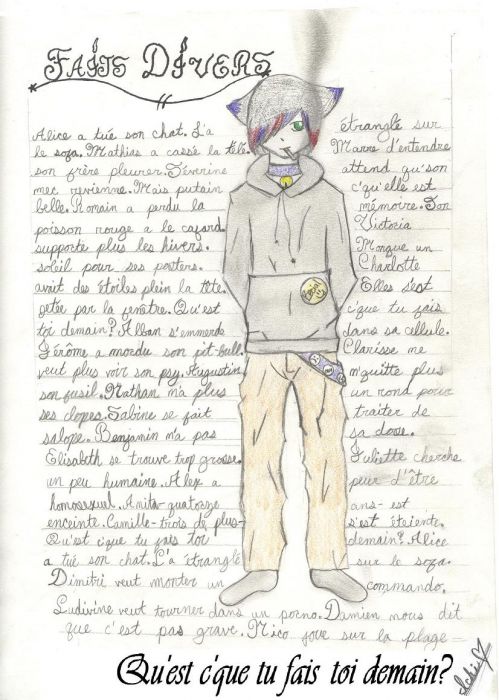 FAITS DIVERS
Alice a tué son chat. L'a étranglé sur
le soza. Mathias a cassé la télé. Marre d'entendre
son frère pleurer. Séverine attend qu'son
mec revienne. Mais putain c'qu'elle est
belle. Romain a perdu la mémoire. Son
poisson rouge a le cafard. Victoria
supporte plus les hivers. Manque un
soleil pour ses poiters. Charlotte
avait des étoiles plein la tête. Elles s'est
jetée par la fenêtre. Qu'est c'que tu fais
toi demain? Alban s'emmerde dans sa cellule.
Jérôme a mordu son pit-bull. Clarisse me
veut plus voir son psy. Augustin m'quitte plus
son fusil. Nathan m'a plus un rond pour
ses clopes. Sabine se fait traiter de
salope. Benjamin m'a pas sa dose.
Elisabeth se trouve trop grosse. Juliette cherche
un peu humaine. Alex a peur d'être
homosexuel. Anita-quatorze ans-est
enceinte. Camille-trois de plus- s'est éteinte.
Qu'est c'que tu fais toi demain? Alice
a tué son chat. L'a étranglé sur le soza.
Dimitri veut monter un commando.
Ludivine veut tourner dans un porno. Damien nous dit
que c'est pas grave. Nico joue sur la plage
Qu'est c'que tu fais toi demain?